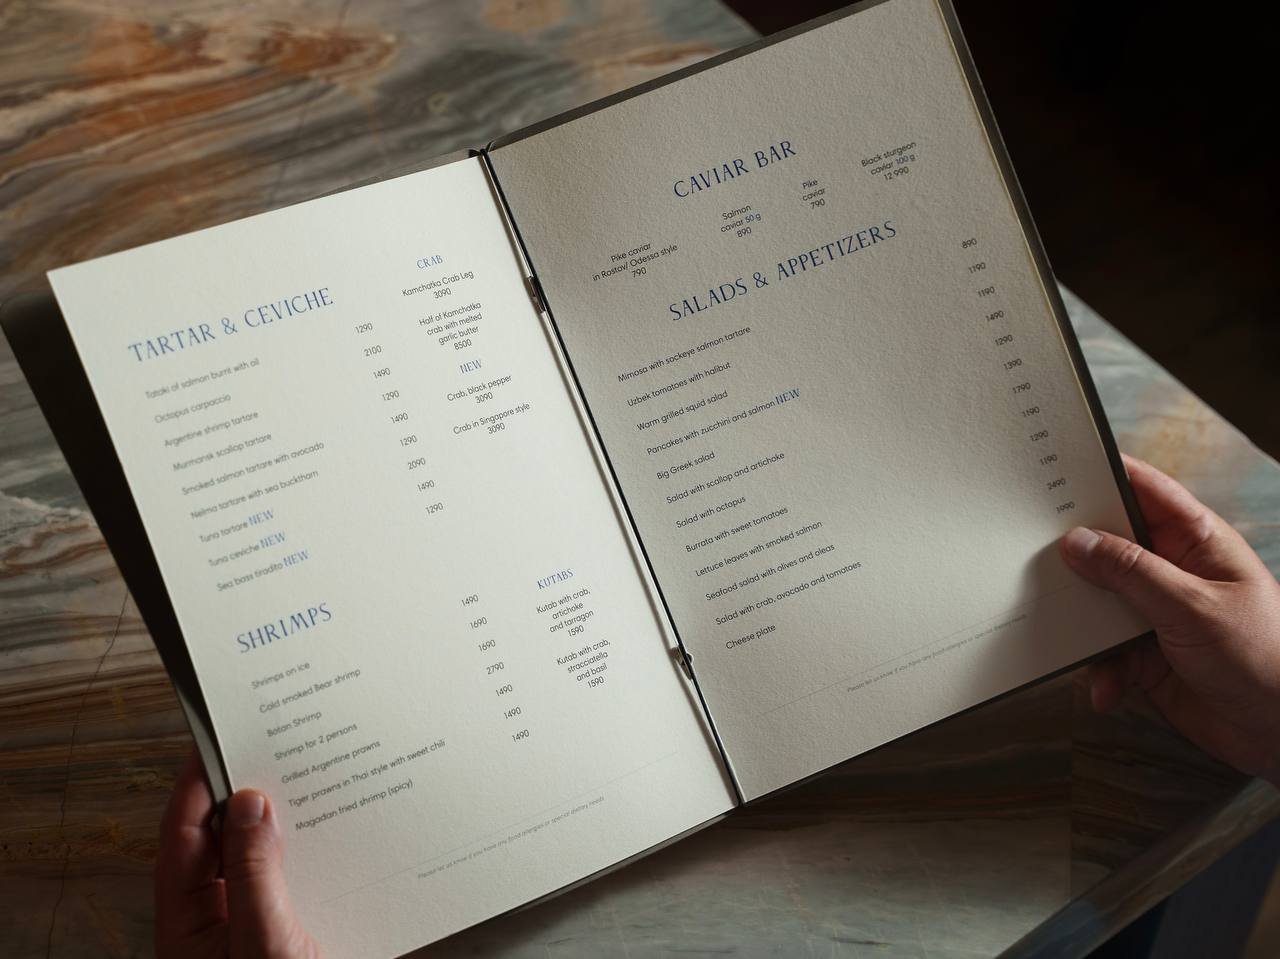 TARTAR & CEVICHE
Tataki of salmon burnt with oil 1290
Octopus carpaccio 2100
Argentine shrimp tartare 1490
Murmansk scallop tartare 1290
Smoked salmon tartare with avocado 1490
Nelma tartare with sea buckthorn 1290
Tuna tartare NEW 2090
Tuna ceviche NEW 1490
Sea bass tiradito NEW 1290
CRAB
Kamchatka Crab Leg
3090
Half of Kamchatka
crab with melted
garlic butter
8500
NEW
Crab, black pepper
3090
Crab in Singapore style
3090
SHRIMPS
Shrimps on ice 1490
Cold smoked Bear shrimp 1690
Botan Shrimp 1690
Shrimp for 2 persons 2790
Grilled Argentine prawns 1490
Tiger prawns in Thai style with sweet chili 1490
Magadan fried shrimp (spicy) 1490
KUTABS
Kutab with crab,
artichoke
and tarragon
1590
Kutab with crab,
stracciatella
and basil
1590
Please let us know if you have any food allergies or special dietary needs
CAVIAR BAR
Pike caviar
in Rostov/Odessa style
790
Salmon
caviar 50 g
890
Pike
caviar
790
Black sturgeon
caviar 100 g
12 990
SALADS & APPETIZERS
Mimosa with sockeye salmon tartare 890
Uzbek tomatoes with halibut 1190
Warm grilled squid salad 1190
Pancakes with zucchini and salmon NEW 1490
Big Greek salad 1290
Salad with scallop and artichoke 1390
Salad with octopus 1790
Burrata with sweet tomatoes 1190
Lettuce leaves with smoked salmon 1290
Seafood salad with olives and oleas 1190
Salad with crab, avocado and tomatoes 2490
Cheese plate 1990
Please let us know if you have any food allergies or special dietary needs